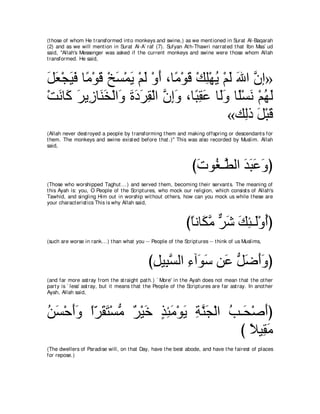 (those of whom He transformed into monkeys and swine,) as we mentioned in Surat Al-Baqarah
(2) and as we will mention in Surat Al-A`raf (7). Sufyan Ath-Thawri narrated that Ibn Mas`ud
said, "Allah's Messenger was asked if the current monkeys and swine were those whom Allah
transformed. He said,
«إِنَّ اللهَ لَمْ يُهْلِكْ قَوْمًا، أَوْ لَمْ يَمْسَخْ قَوْمًا فَيَجْعَلَ
لَهُمْ نَسْلًا وَلَا عَقِبًا، وَإِنَّ الْقِرَدَةَ وَالْخَنَازِيرَ كَانَتْ
قَبْلَ ذلِك»
(Allah never destroyed a people by transforming them and making offspring or descendants for
them. The monkeys and swine existed before that.)" This was also recorded by Muslim. Allah
said,
(وَعَبَدَ الطَّـغُوتَ)
(Those who worshipped Taghut...) and served them, becoming their servants. The meaning of
this Ayah is: you, O People of the Scriptures, who mock our religion, which consists of Allah's
Tawhid, and singling Him out in worship without others, how can you mock us while these are
your characteristics This is why Allah said,
(أُوْلَـئِكَ شَرٌّ مَّكَاناً)
(such are worse in rank...) than what you -- People of the Scriptures -- think of us Muslims,
(وَأَضَلُّ عَن سَوَآءِ السَّبِيلِ)
(and far more astray from the straight path.) `More' in the Ayah does not mean that the other
party is `less' astray, but it means that the People of the Scriptures are far astray. In another
Ayah, Allah said,
(أَصْحَـبُ الْجَنَّةِ يَوْمَئِذٍ خَيْرٌ مُّسْتَقَرّاً وَأَحْسَنُ
مَقِيلاً )
(The dwellers of Paradise will, on that Day, have the best abode, and have the fairest of places
for repose.)